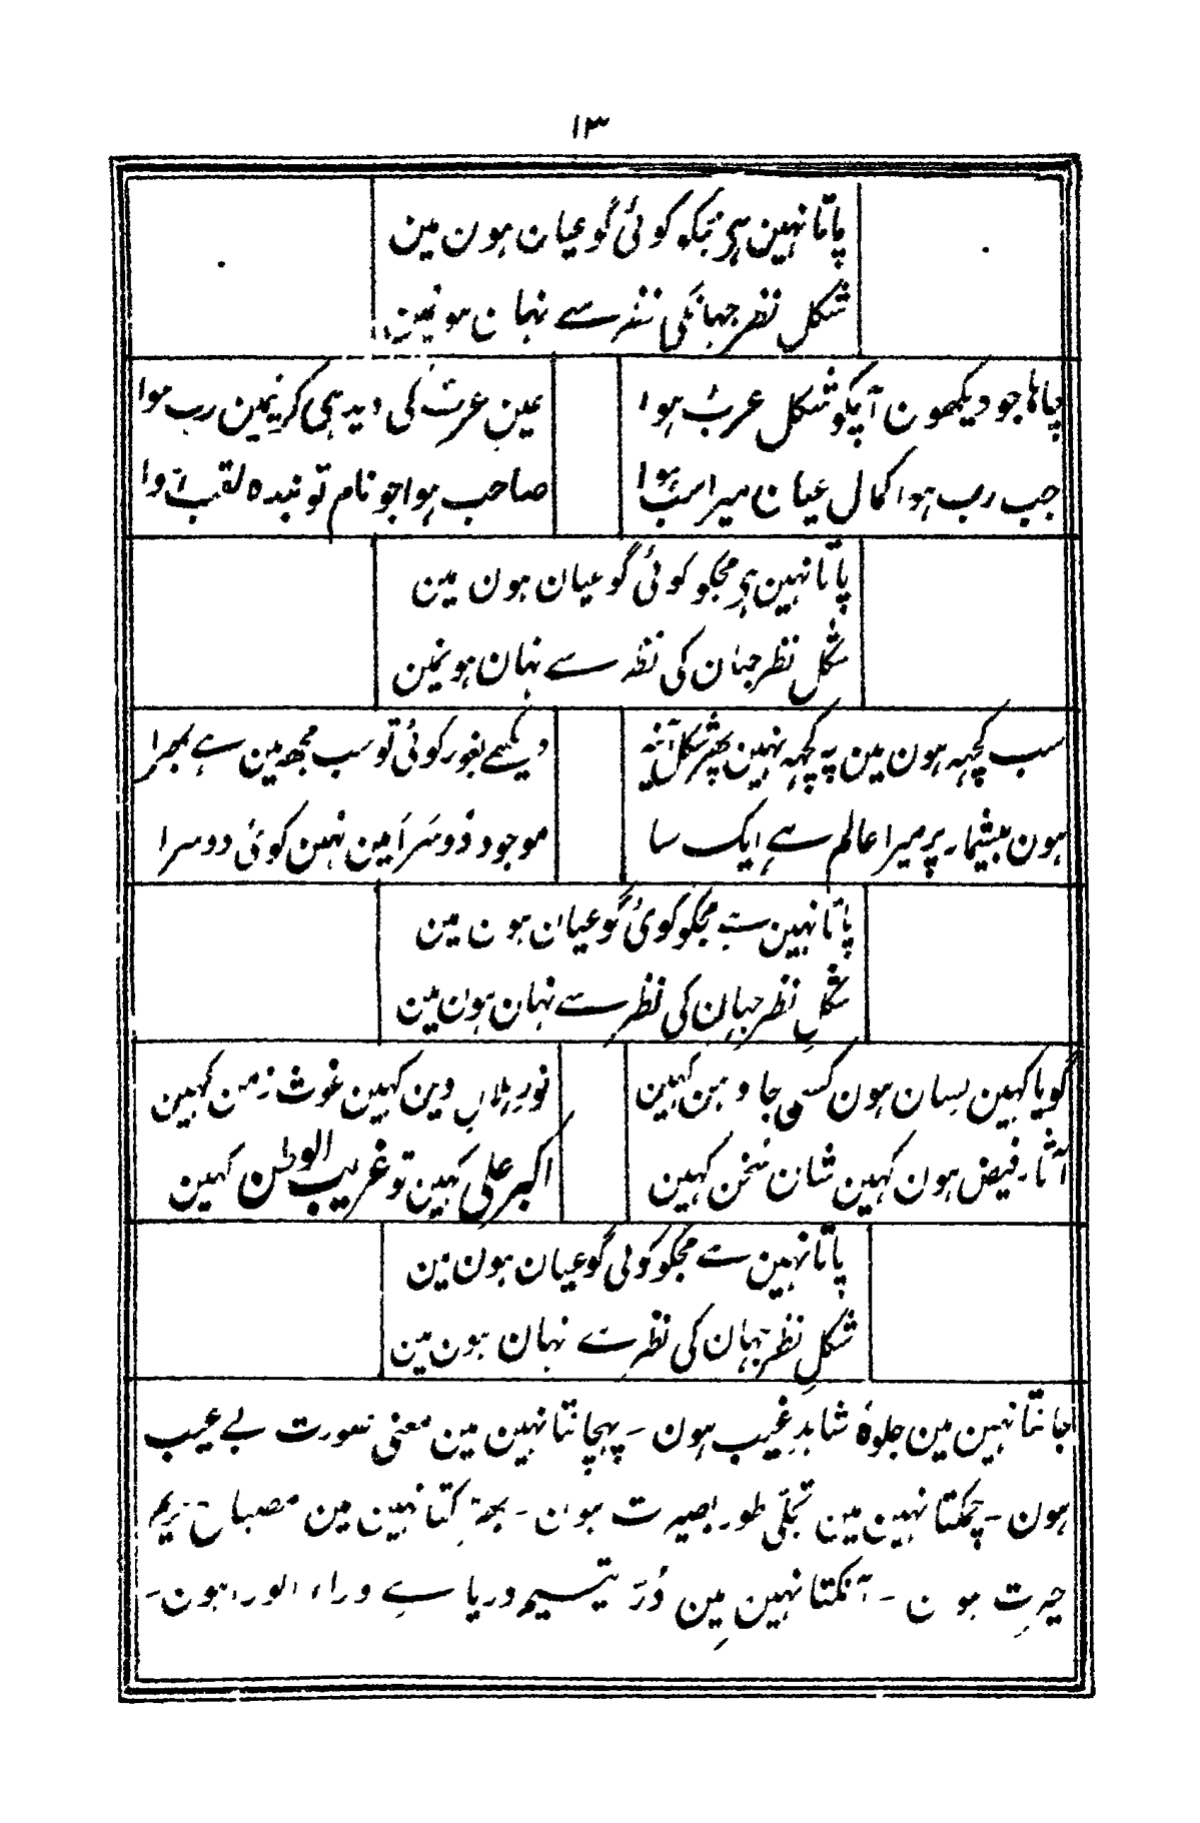 ۱۳
پاتا نہین ہی مجکو کوئی گو عیان ہون مین
شکل نظر جہانکی نظر سے نہان ہونمین
چاہا جو دیکھون آپکو شکل عرب ہوا
عین عرب کی دید ہی کرنمین رب ہوا
جب رب ہوا کمال عیان میرا سب ہوا
صاحب ہوا جو نام تو بندہ لقب ہوا
پاتا نہین ہی مجکو کوئی گو عیان ہون مین
شکل نظر جہان کی نظر سے نہان ہونمین
سب کچہہ ہون مین پہ کچہہ نہین پھر شکل آئنہ
دیکھے بغور کوئی تو سب مجھ مین ہے بھرا
ہون بیشمار پر میرا عالم ہے ایک سا
موجود دوسرا مین نہین کوئی دوسرا
پاتا نہین ہے مجکو کوئی گو عیان ہون مین
شکلِ نظر جہان کی نظر سے نہان ہون مین
گویا کہین لسان ہون کسی جا دہن کہین
نورِ ہلال دین کہین غوث زمن کہین
آثار فیض ہون کہین شان سخن کہین
اکبر علی کہین تو غریب الوطن کہین
پاتا نہین ہے مجکو کوئی گو عیان ہون مین
شکلِ نظر جہان کی نظر سے نہان ہون مین
جانتا نہین مین جلوۂ شاہدِ غیب ہون ۔ پہچانتا نہین مین معنی صورت بے عیب
ہون ۔ چمکتا نہین مین تجلّی طور بصیرت ہون ۔ بھڑکتا نہین مین مصباح حریم
حیرت ہون ۔ آنکتا نہین مین دُرّ یتیم دریاے وراء الورا ہون ۔